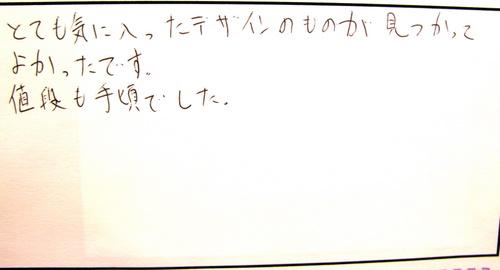 とても気に入ったデザインのものが見つかって
よかったです。
値段も手頃でした。